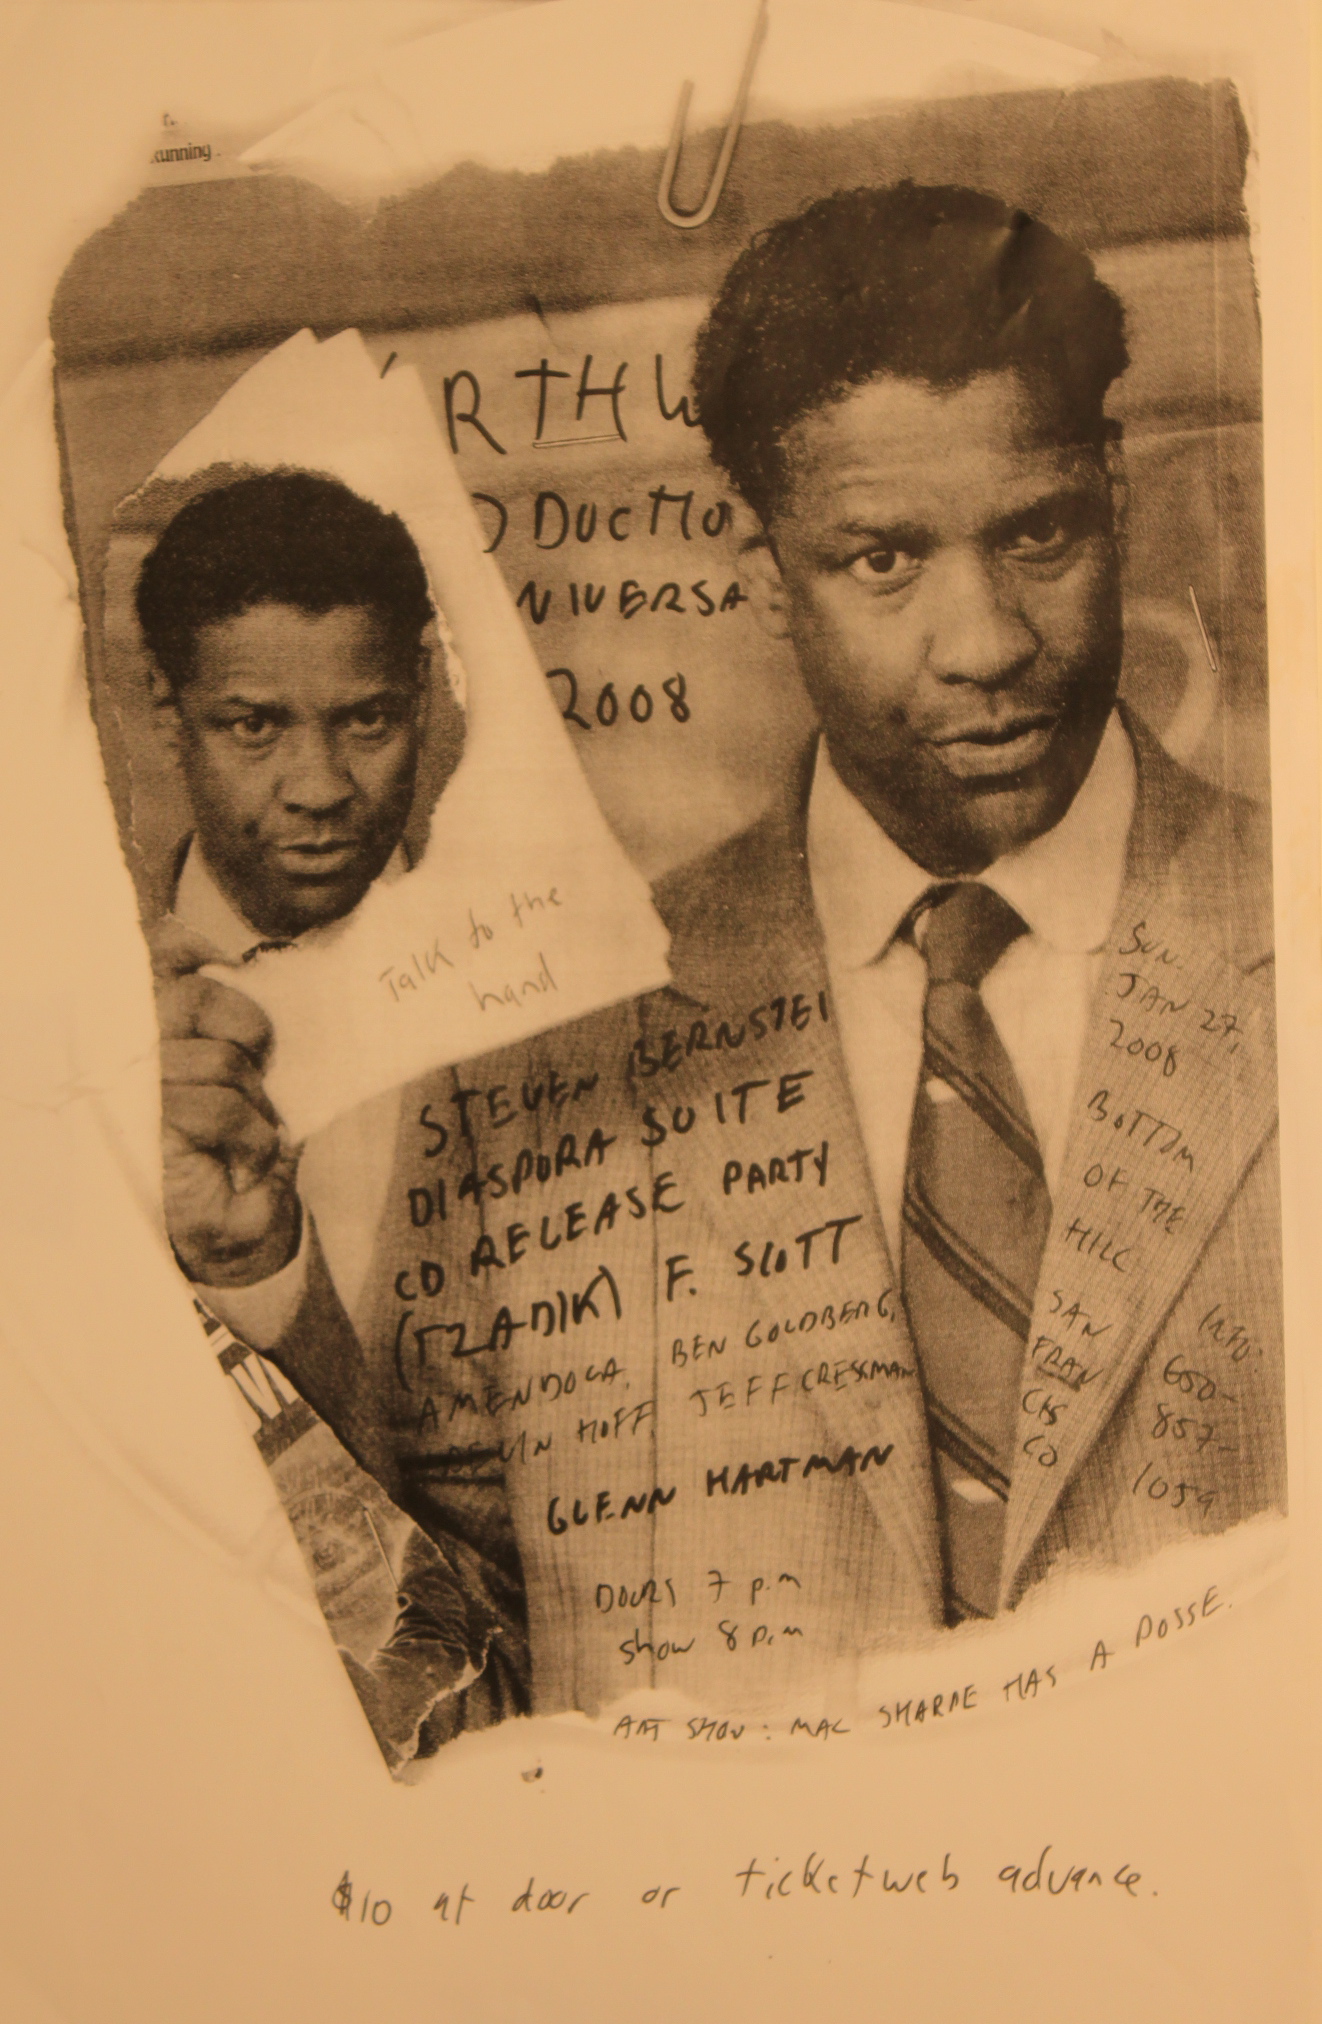 Running
'RTHW
DUCTIO
NIVERSA
2008
Talk to the
hand
STEVEN BERNSTEI
DIASPORA SUITE
CD RELEASE PARTY
(TZADIK) F. SCOTT
AMENDOLA, BEN GOLDBERG,
HOFF, JEFF CRESSMAN
GLENN HARTMAN
DOORS 7 p.m
Show 8 p.m
SUN.
JAN 27,
2008
BOTTOM
OF THE
HILL
SAN
FRAN
CIS
CO
INFO:
650-
857-
1059
ART SHOW: MAC SHARPE HAS A POSSE.
$10 at door or ticketweb advance.